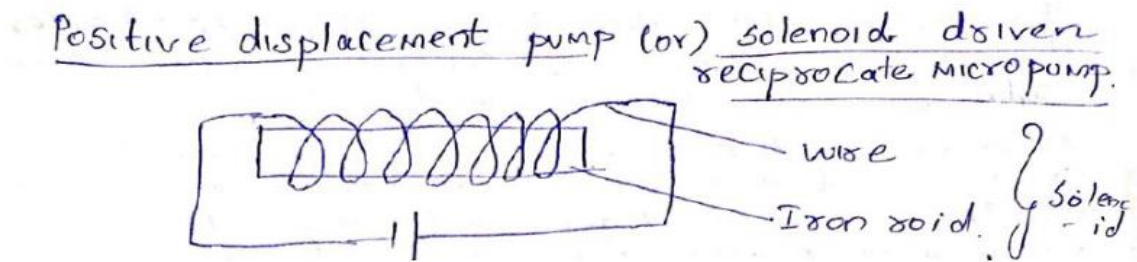 Positive displacement pump (or) solenoid driven
reciprocate Micropump.
wire
Iron roid.
Solenc
- id